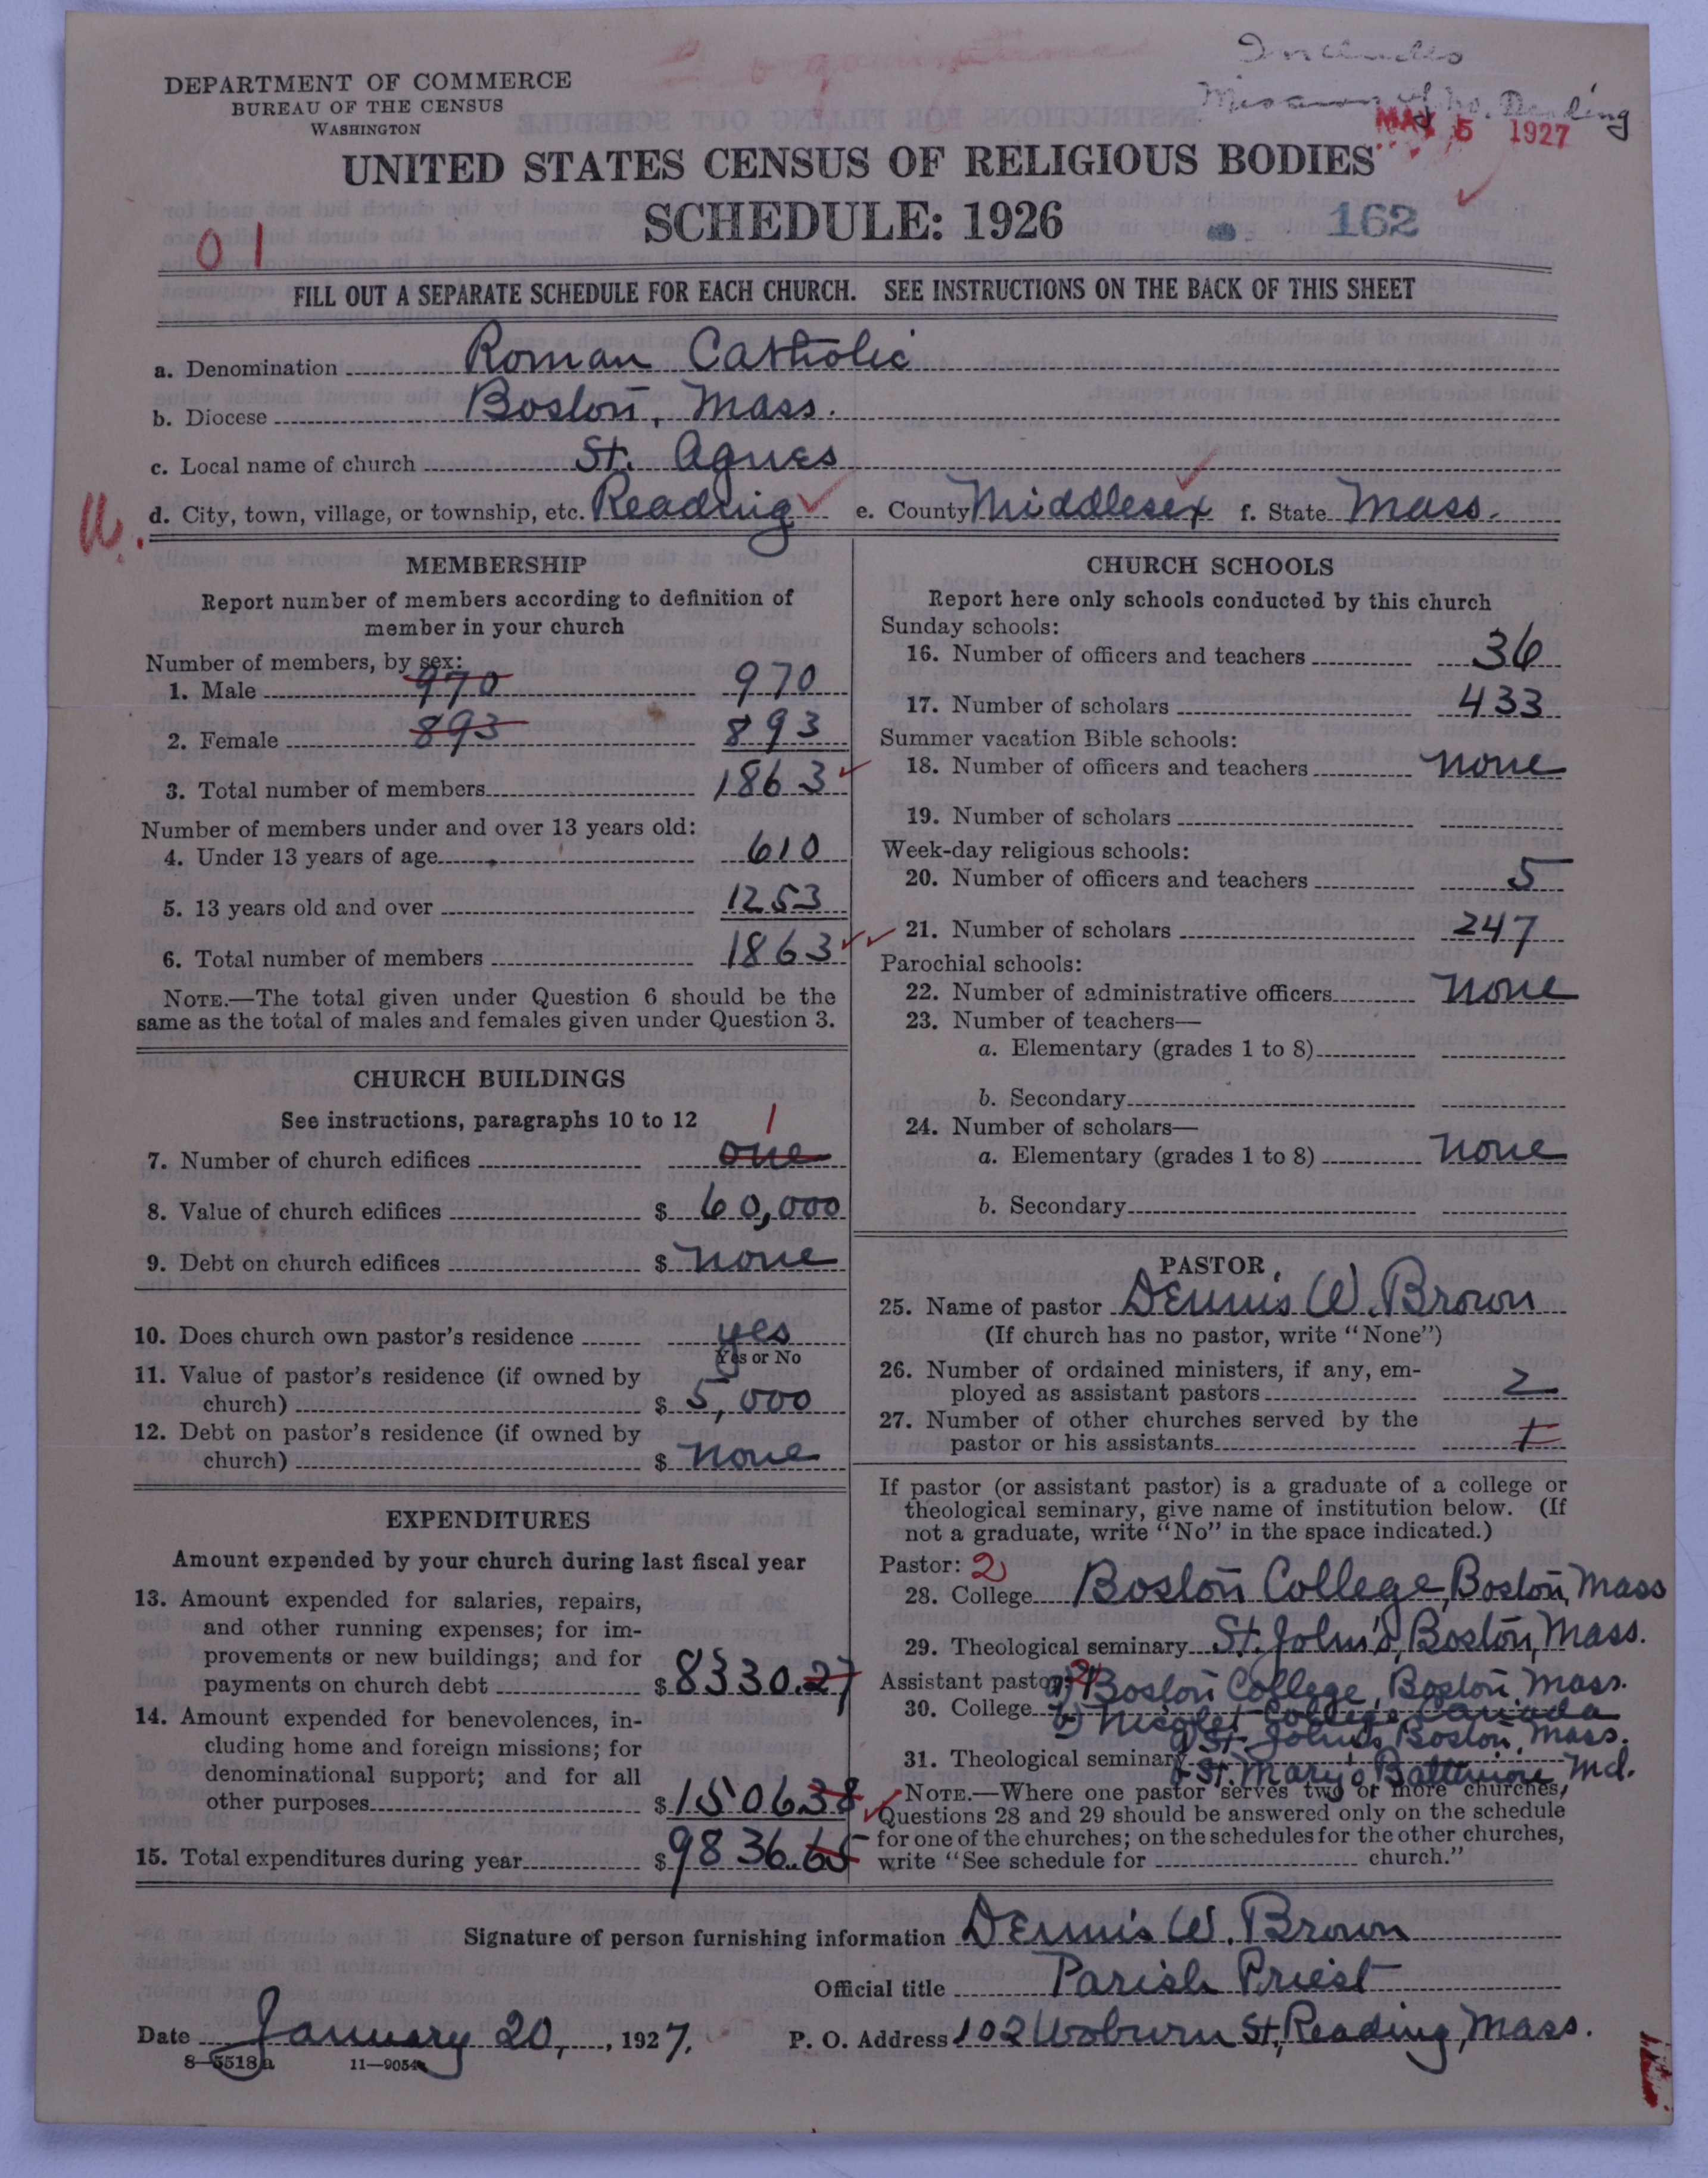 Includes
Mission of No. Reading
DEPARTMENT OF COMMERCE
BUREAU OF THE CENSUS
WASHINGTON
MAY 5 1927
UNITED STATES CENSUS OF RELIGIOUS BODIES
SCHEDULE: 1926
162
01
FILL OUT A SEPARATE SCHEDULE FOR EACH CHURCH. SEE INSTRUCTIONS ON THE BACK OF THIS SHEET
a. Denomination Roman Catholic
b. Diocese Boston, Mass.
c. Local name of church St. Agnes
d. City, town, village, or township, etc. Reading e. County Middlesex f. State Mass.
MEMBERSHIP
Report number of members according to definition of
member in your church
Number of members, by sex:
1. Male 970 970
2. Female 893 893
3. Total number of members 1863
Number of members under and over 13 years old:
4. Under 13 years of age 610
5. 13 years old and over 1253
6. Total number of members 1863
NOTE.—The total given under Question 6 should be the
same as the total of males and females given under Question 3.
CHURCH BUILDINGS
See instructions, paragraphs 10 to 12
1
7. Number of church edifices one
8. Value of church edifices $ 60,000
9. Debt on church edifices $ none
10. Does church own pastor's residence yes
Yes or No
11. Value of pastor's residence (if owned by
church) $ 5,000
12. Debt on pastor's residence (if owned by
church) $ none
EXPENDITURES
Amount expended by your church during last fiscal year
13. Amount expended for salaries, repairs,
and other running expenses; for im-
provements or new buildings; and for
payments on church debt $ 8330.27
14. Amount expended for benevolences, in-
cluding home and foreign missions; for
denominational support; and for all
other purposes $ 1506 38
15. Total expenditures during year $ 9836.65
CHURCH SCHOOLS
Report here only schools conducted by this church
Sunday schools:
16. Number of officers and teachers 36
17. Number of scholars 433
Summer vacation Bible schools:
18. Number of officers and teachers none
19. Number of scholars
Week-day religious schools:
20. Number of officers and teachers 5
21. Number of scholars 247
Parochial schools:
22. Number of administrative officers none
23. Number of teachers—
a. Elementary (grades 1 to 8)
b. Secondary
24. Number of scholars—
a. Elementary (grades 1 to 8) none
b. Secondary
PASTOR
25. Name of pastor Dennis W. Brown
(If church has no pastor, write "None")
26. Number of ordained ministers, if any, em-
ployed as assistant pastors 2
27. Number of other churches served by the
pastor or his assistants 1
If pastor (or assistant pastor) is a graduate of a college or
theological seminary, give name of institution below. (If
not a graduate, write "No" in the space indicated.)
Pastor: 2
28. College Boston College, Boston, Mass
29. Theological seminary St. John's, Boston, Mass.
Assistant pastor: a) Boston College, Boston, Mass.
30. College b) College Canada
a St. John's, Boston, Mass.
31. Theological seminary b St. Mary's Baltimore Md.
NOTE.—Where one pastor serves two or more churches,
Questions 28 and 29 should be answered only on the schedule
for one of the churches; on the schedules for the other churches,
write "See schedule for church."
Signature of person furnishing information Dennis W. Brown
Official title Parish Priest
Date January 20, 1927. P. O. Address 102 Woburn St, Reading, Mass.
8—5518a 11—9054